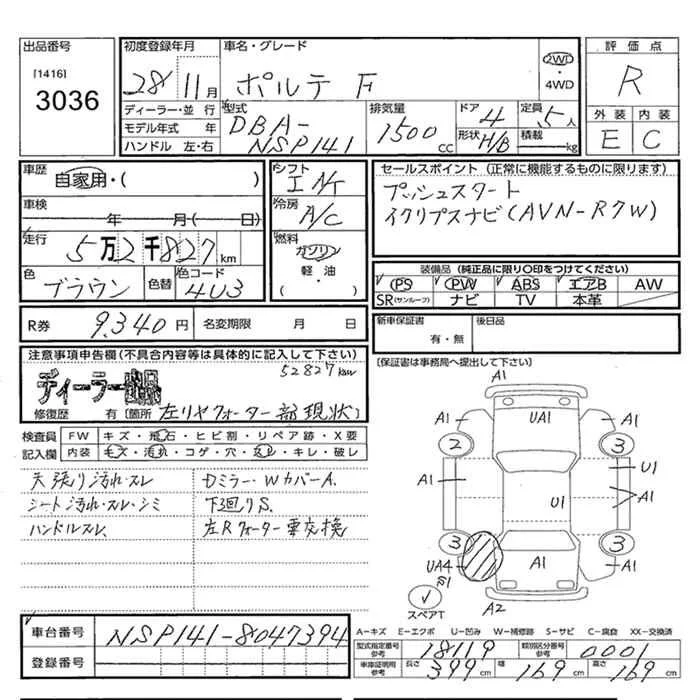 出品番号
[1416]
3036
初度登録年月
28 11月
車名・グレード
ポルテ F
2WD
・
4WD
評価点
R
外装 内装
E C
ディーラー・並行
モデル年式 年
ハンドル 左・右
型式
DBA-
NSP141
排気量
1500 cc
ドア 4
形状 H/B
定員 5人
積載 kg
車歴
自家用・( )
車検
年 月( 日)
走行
5万2千827km
色
ブラウン
色替
色コード
4U3
シフト
INT
冷房
A/C
燃料
ガソリン
軽・油
・( )
セールスポイント (正常に機能するものに限ります)
プッシュスタート
イクリプスナビ(AVN-R7W)
装備品 (純正品に限り〇印をつけてください)
PS PW ABS エアB AW
SR(サンルーフ) ナビ TV 本革
新車保証書
有・無
後日品
R券 9,340円 名変期限 月 日
(保証書は事務局へ提出して下さい)
注意事項申告欄(不具合内容等は具体的に記入して下さい)
52827km
ディーラー出品
修復歴 有 (箇所 左リヤクォーター部現状)
検査員 FW キズ・飛石・ヒビ割・リペア跡・X要
記入欄 内装 キズ・汚れ・コゲ・穴・スレ・キレ・破レ
天張り汚れ・スレ DミラーWカバーA.
シート汚れ・スレ・シミ 下廻りS.
ハンドルスレ 左Rクォーター要交換
A1
A1 UA1 A1
2 3
A1 U1
U1 A1
3 3
UA4 A1 A1
S1
スペアT
A2
車台番号 NSP141-8047394
登録番号
A−キズ E−エクボ U−凹み W−補修跡 S−サビ C−腐食 XX−交換済
型式指定番号 参考 18119 類別区分番号 参考 0001
車庫証明用 参考 長さ 399cm 幅 169cm 高さ 169cm